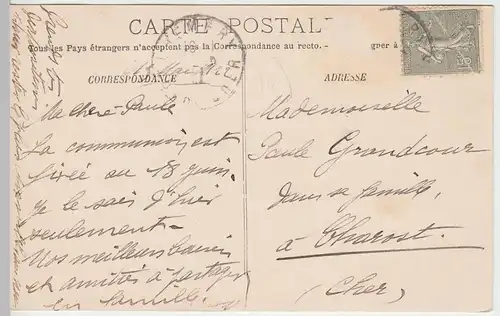 CARTE POSTALE
Tous les Pays étrangers n'acceptent pas la Correspondance au recto.
CORRESPONDANCE
ADRESSE
Ma chère Paule
La communion est
fixée au 18 juin.
Je le sais d'hier
seulement.
Nos meilleurs baisers
et amitiés à partager
en famille.
Mademoiselle
Paule Grandcour
dans sa famille,
à Charost.
(Cher)